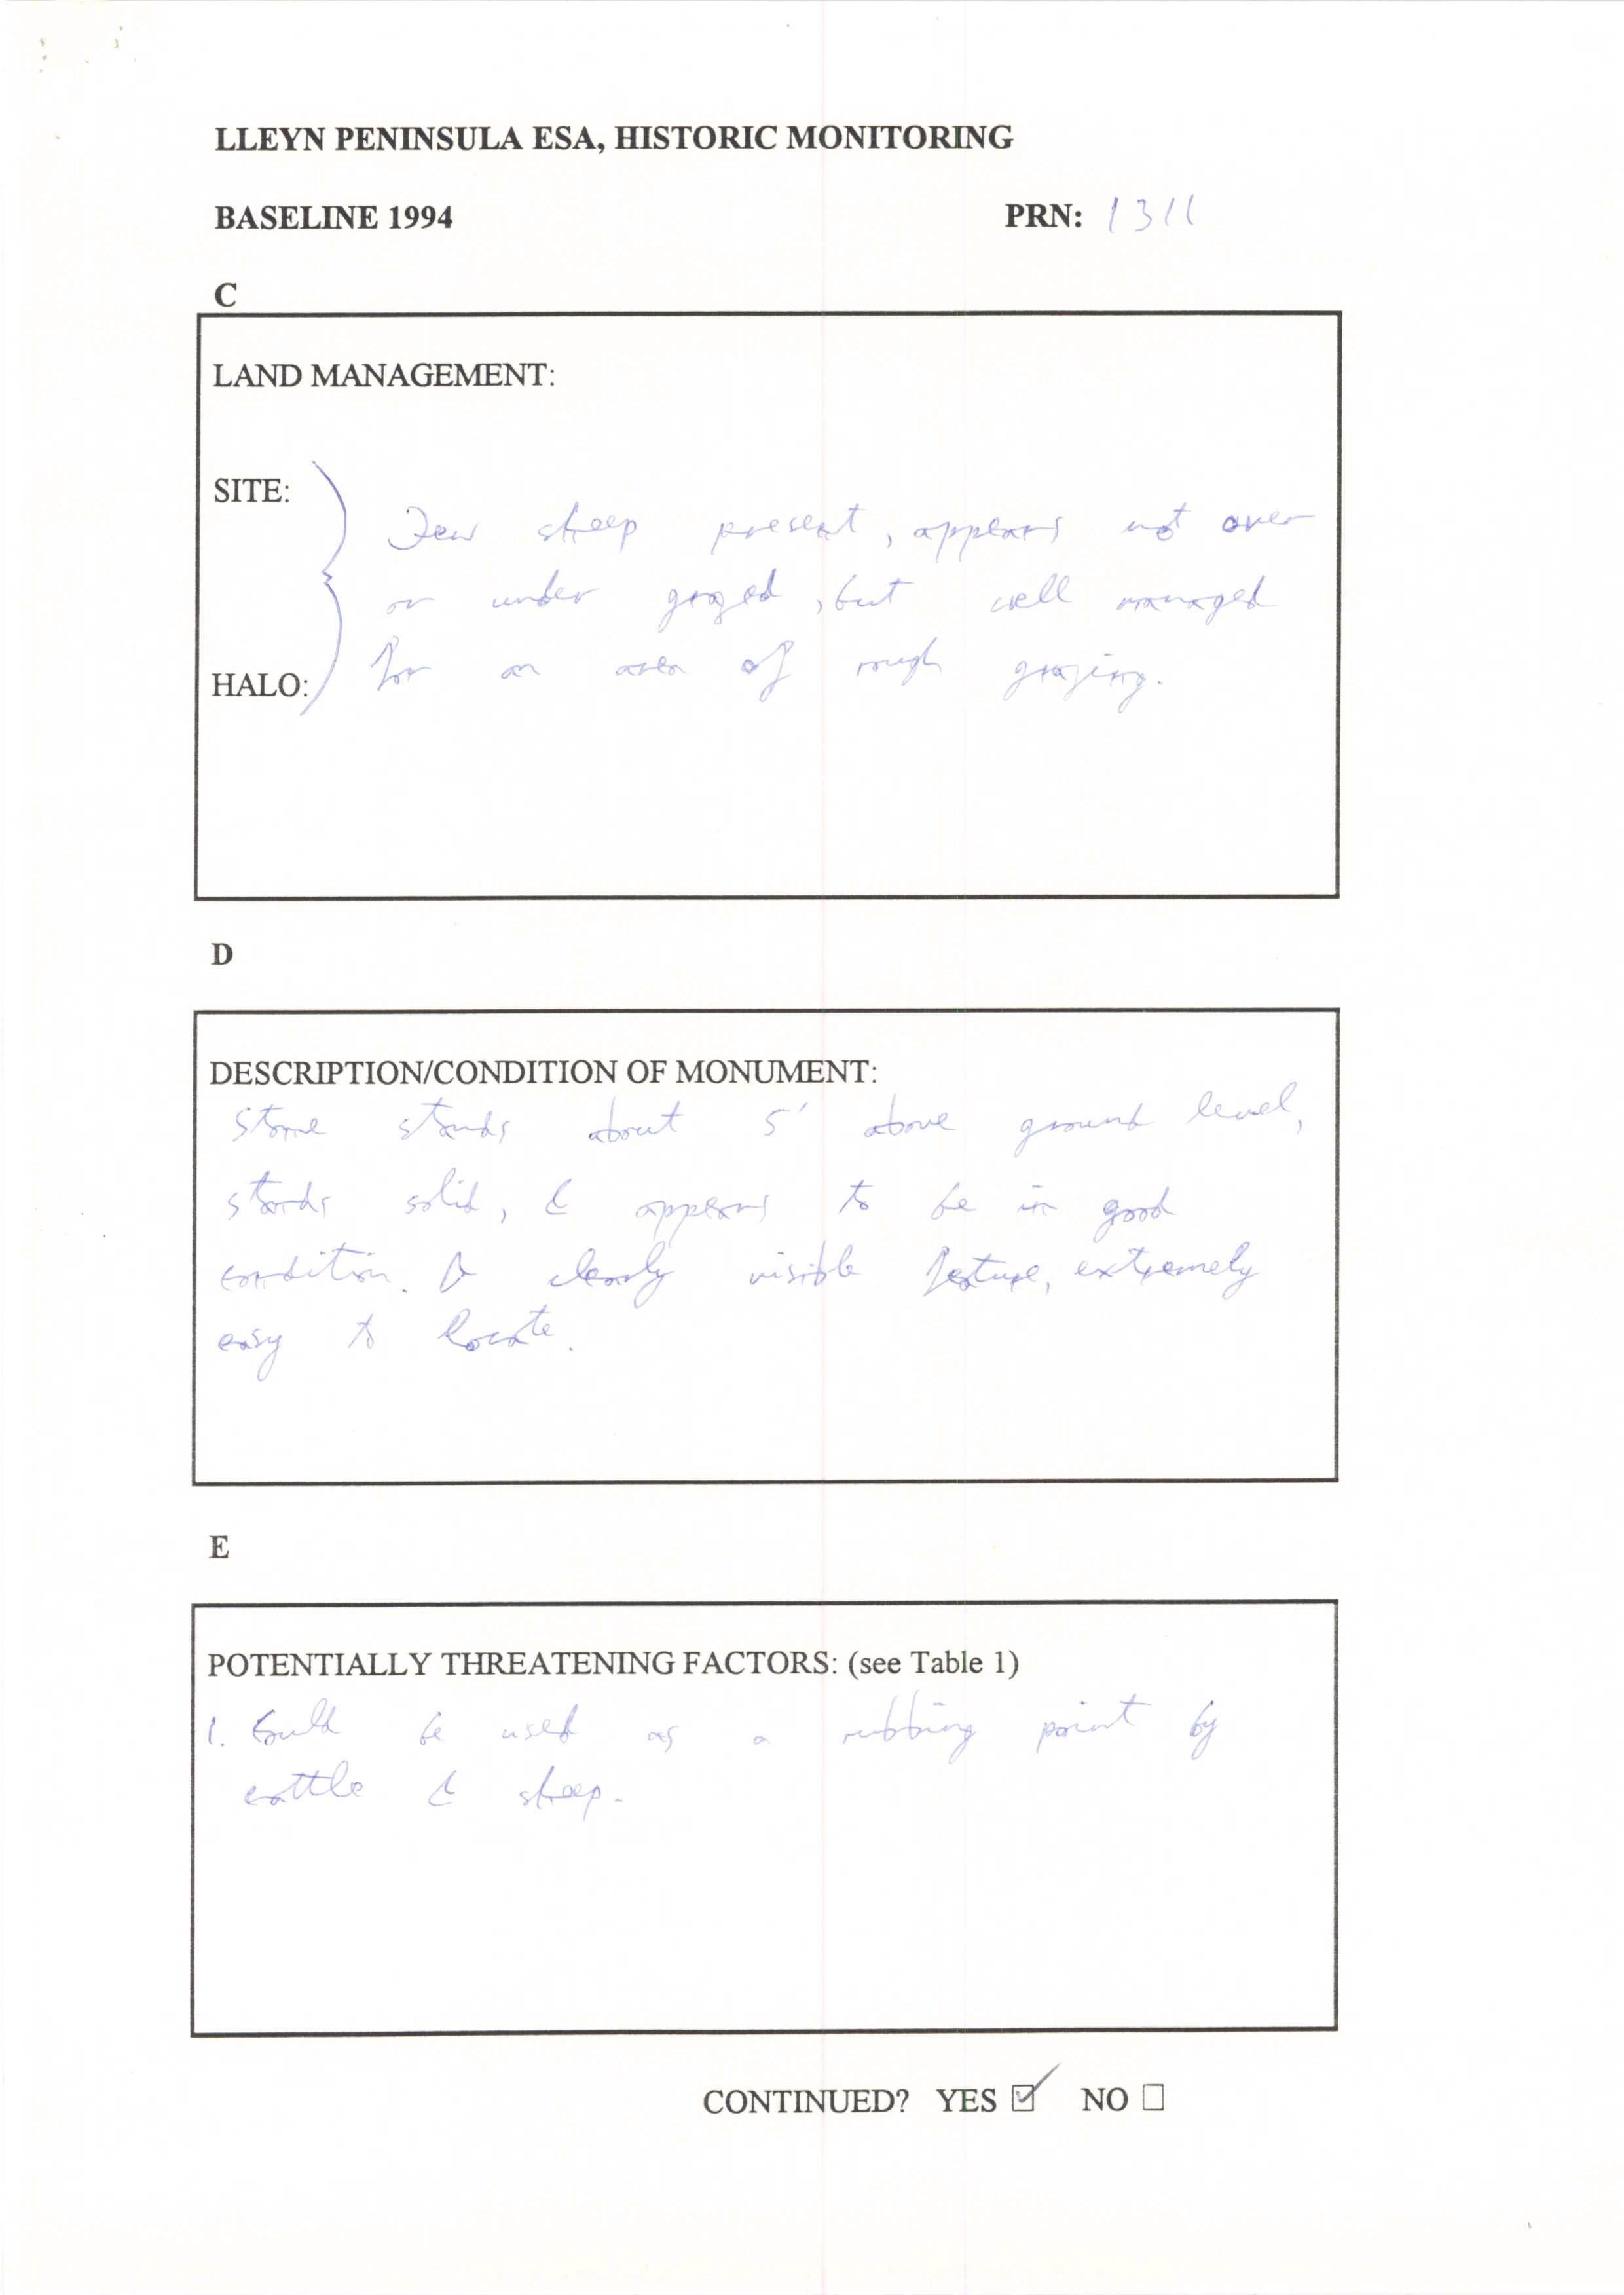 LLEYN PENINSULA ESA, HISTORIC MONITORING
BASELINE 1994 PRN: 1311
C
LAND MANAGEMENT:
SITE:
Few sheep present, appears not over
or under grazed, but well managed
HALO: for an area of rough grazing.
D
DESCRIPTION/CONDITION OF MONUMENT:
Stone stands about 5' above ground level,
stands solid, & appears to be in good
condition. A clearly visible feature, extremely
easy to locate.
E
POTENTIALLY THREATENING FACTORS: (see Table 1)
1. Could be used as a rubbing point by
cattle & sheep.
CONTINUED? YES ☑ NO ☐